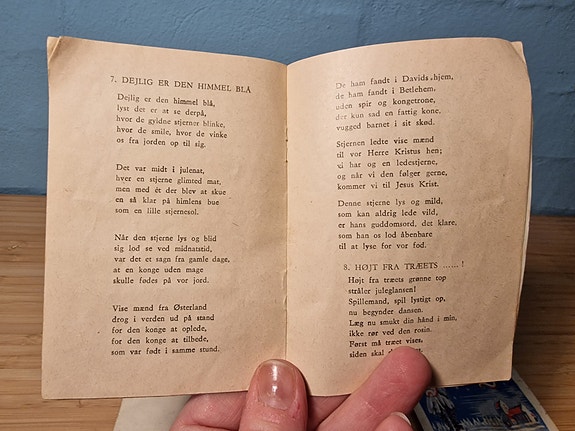 7. DEJLIG ER DEN HIMMEL BLÅ
Dejlig er den himmel blå,
lyst det er at se derpå,
hvor de gyldne stjerner blinke,
hvor de smile, hvor de vinke
os fra jorden op til sig.
Det var midt i julenat,
hver en stjerne glimted mat,
men med ét der blev at skue
en så klar på himlens bue
som en lille stjernesol.
Når den stjerne lys og blid
sig lod se ved midnatstid,
var det et sagn fra gamle dage,
at en konge uden mage
skulle fødes på vor jord.
Vise mænd fra Østerland
drog i verden ud på stand
for den konge at oplede,
for den konge at tilbede,
som var født i samme stund.
De ham fandt i Davids hjem,
de ham fandt i Betlehem,
uden spir og kongetrone,
der kun sad en fattig kone,
vugged barnet i sit skød.
Stjernen ledte vise mænd
til vor Herre Kristus hen;
vi har og en ledestjerne,
og når vi den følger gerne,
kommer vi til Jesus Krist.
Denne stjerne lys og mild,
som kan aldrig lede vild,
er hans guddomsord, det klare,
som han os lod åbenbare
til at lyse for vor fod.
8. HØJT FRA TRÆETS ...... !
Højt fra træets grønne top
stråler juleglansen!
Spillemand, spil lystigt op,
nu begynder dansen.
Læg nu smukt din hånd i min,
ikke rør ved den rosin.
Først må træet vises,
siden skal